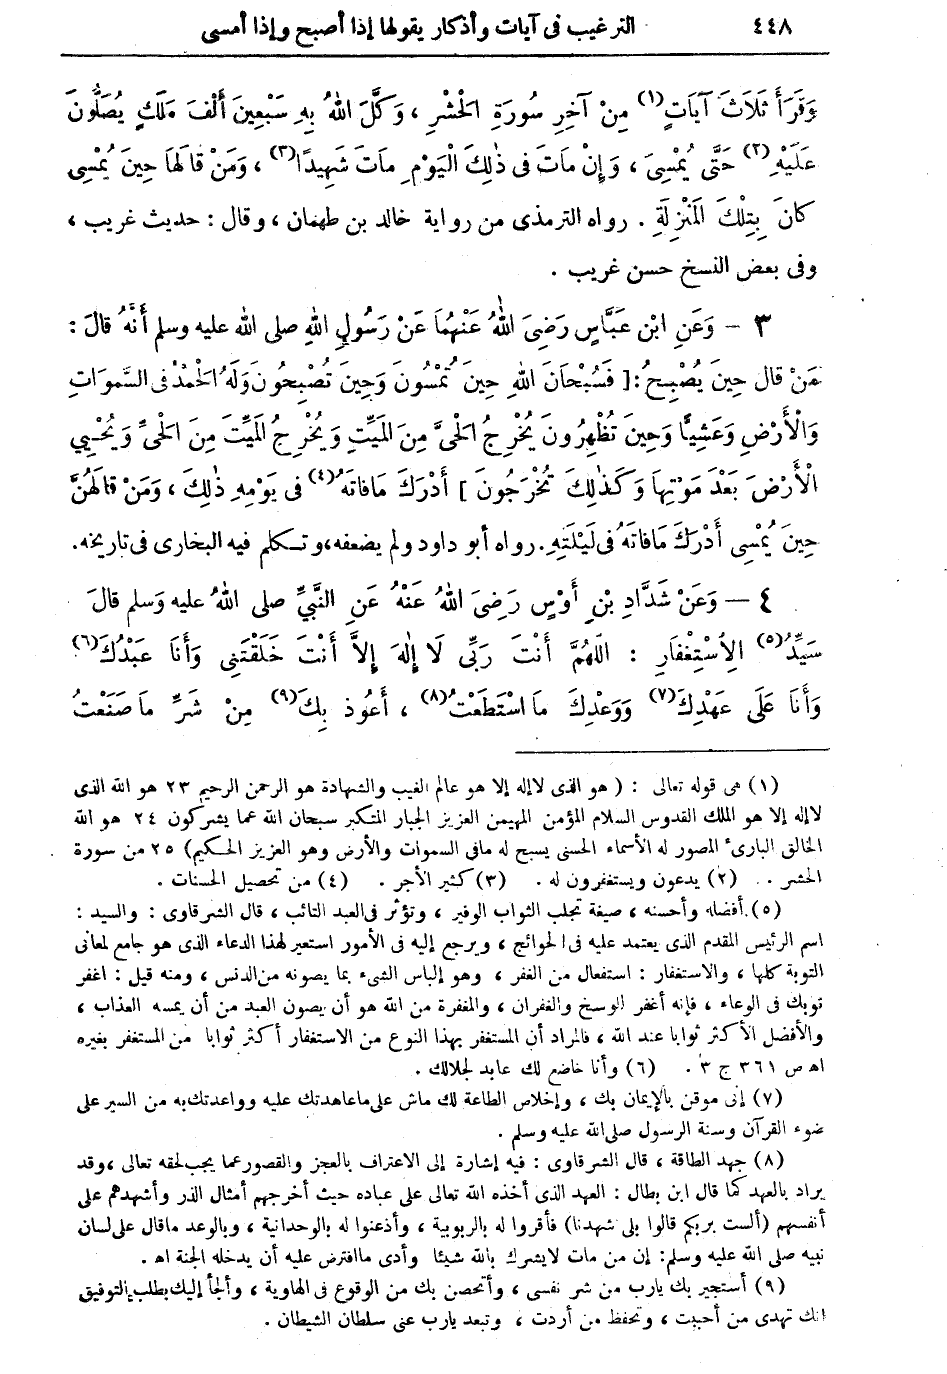 ٤٤٨ الترغيب فى آيات وأذكار يقولها إذا أصبح وإذا أمسى
وَقَرَأَ ثَلَاثَ آيَاتٍ(١) مِنْ آخِرِ سُورَةِ الْحَشْرِ ، وَكَّلَ اللهُ بِهِ سَبْعِينَ أَلْفَ مَلَكٍ يُصَلُّونَ
عَلَيْهِ(٢) حَتَّى يُمْسِىَ ، وَإِنْ مَاتَ فِى ذٰلِكَ الْيَوْمِ مَاتَ شَهِيدًا(٣) ، وَمَنْ قَالَهَا حِينَ يُمْسِى
كَانَ بِتِلْكَ الْمَنْزِلَةِ . رواه الترمذى من رواية خالد بن طهمان ، وقال : حديث غريب ،
وفى بعض النسخ حسن غريب .
٣ – وَعَنِ ابْنِ عَبَّاسٍ رَضِىَ اللهُ عَنْهُمَا عَنْ رَسُولِ اللهِ صلى الله عليه وسلم أَنَّهُ قَالَ :
مَنْ قال حِينَ يُصْبِحُ : [ فَسُبْحَانَ اللهِ حِينَ تُمْسُونَ وَحِينَ تُصْبِحُونَ وَلَهُ الْحَمْدُ فِى السَّمٰوَاتِ
وَالْأَرْضِ وَعَشِيًّا وَحِينَ تُظْهِرُونَ يُخْرِجُ الْحَىَّ مِنَ الْمَيِّتِ وَيُخْرِجُ الْمَيِّتَ مِنَ الْحَىِّ وَيُحْيِي
الْأَرْضَ بَعْدَ مَوْتِهَا وَكَذٰلِكَ تُخْرَجُونَ ] أَدْرَكَ مَافَاتَهُ(٤) فى يَوْمِهِ ذٰلِكَ ، وَمَنْ قَالَهُنَّ
حِينَ يُمْسِى أَدْرَكَ مَافَاتَهُ فى لَيْلَتِهِ . رواه أبو داود ولم يضعفه، وتكلم فيه البخارى فى تاريخه.
٤ – وَعَنْ شَدَّادِ بْنِ أَوْسٍ رَضِىَ اللهُ عَنْهُ عَنِ النَّبِىِّ صلى اللهُ عليه وَسلم قَالَ
سَيِّدُ(٥) الِاسْتِغْفَارِ : اللَّهُمَّ أَنْتَ رَبِّى لَا إِلٰهَ إِلاَّ أَنْتَ خَلَقْتَنِى وَأَنَا عَبْدُكَ(٦)
وَأَنَا عَلَى عَهْدِكَ(٧) وَوَعْدِكَ مَا اسْتَطَعْتُ(٨) ، أَعُوذُ بِكَ(٩) مِنْ شَرِّ مَا صَنَعْتُ
(١) هى قوله تعالى : ( هو الذى لاإله إلا هو عالم الغيب والشهادة هو الرحمن الرحيم ٢٣ هو الله الذى
لاإله إلا هو الملك القدوس السلام المؤمن المهيمن العزيز الجبار المتكبر سبحان الله عما يشركون ٢٤ هو الله
الخالق البارىء المصور له الأسماء الحسنى يسبح له مافى السموات والأرض وهو العزيز الحكيم) ٢٥ من سورة
الحشر . (٢) يدعون ويستغفرون له . (٣) كثير الأجر . (٤) من تحصيل الحسنات .
(٥) أفضله وأحسنه ، صيغة تجلب الثواب الوفير ، وتؤثر فى العبد التائب ، قال الشرقاوى : والسيد :
اسم الرئيس المقدم الذى يعتمد عليه فى الحوائج ، ويرجع إليه فى الأمور استعير لهذا الدعاء الذى هو جامع لمعانى
التوبة كلها ، والاستغفار : استفعال من الغفر ، وهو إلباس الشىء بما يصونه من الدنس ، ومنه قيل : اغفر
ثوبك فى الوعاء ، فإنه أغفر للوسخ والغفران ، والمغفرة من الله هو أن يصون العبد من أن يمسه العذاب ،
والأفضل الأكثر ثوابا عند الله ، فالمراد أن المستغفر بهذا النوع من الاستغفار أكثر ثوابا من المستغفر بغيره
اه ص ٣٦١ ج ٣ . (٦) وأنا خاضع لك عابد لجلالك .
(٧) إنى موقن بالإيمان بك ، وإخلاص الطاعة لك ماش على ماعاهدتك عليه وواعدتك به من السير على
ضوء القرآن وسنة الرسول صلى الله عليه وسلم .
(٨) جهد الطاقة ، قال الشرقاوى : فيه إشارة إلى الاعتراف بالعجز والقصور عما يجب لحقه تعالى ، وقد
يراد بالعهد كما قال ابن بطال : العهد الذى أخذه الله تعالى على عباده حيث أخرجهم أمثال الذر وأشهدهم على
أنفسهم (ألست بربكم قالوا بلى شهدنا) فأقروا له بالربوبية ، وأذعنوا له بالوحدانية ، وبالوعد ماقال على لسان
نبيه صلى الله عليه وسلم: إن من مات لايشرك بالله شيئا وأدى ماافترض عليه أن يدخله الجنة اه .
(٩) أستجير بك يارب من شر نفسى ، وأتحصن بك من الوقوع فى الهاوية ، وألجأ إليك بطلب التوفيق
انك تهدى من أحببت ، وتحفظ من أردت ، وتبعد يارب عنى سلطان الشيطان .